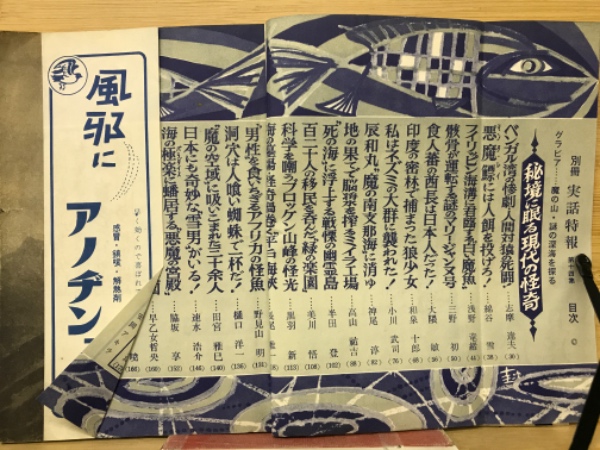 別冊 実話特報 第十四集 目次
グラビア……魔の山・謎の深海を探る
秘境に眠る現代の怪奇
ベンガル湾の惨劇、人間対狼の死闘! 志摩 達夫
悪魔鱶には人餌を投げろ! 綿谷 雪
フィリッピン海溝に君臨する白魔魚! 浅野
骸骨が運転する謎のマリー・ジャンヌ号 三野 初
食人蕃の酋長は日本人だった! 大隈 敏
印度の密林で捕まった狼少女 和泉 十郎
私はネズミの大群に襲われた! 小川 武司
辰和丸、魔の南支那海に消ゆ 神尾 淳
地の果てで脳漿を搾るミイラ工場 高山
“死の海”に浮上する戦慄の幽霊島 半田 登
百二十人の移民を呑んだ“緑の楽園” 美川 悟
科学を嘲うブロッケン山峰の怪光 黒羽 新
“男性”を食いちぎるアフリカの怪魚 野見山 明
洞穴は人喰い蜘蛛で一杯だ! 樋口 洋一
“魔の空域”に吸いこまれた三十余人 田宮 雅巳
日本にも奇妙な“雪男”がいる! 速水 浩介
海の極楽に蟠居する“悪魔の宮殿” 脇坂 享
早乙女哲央
風邪に
アノヂン
感冒・頭痛・解熱剤